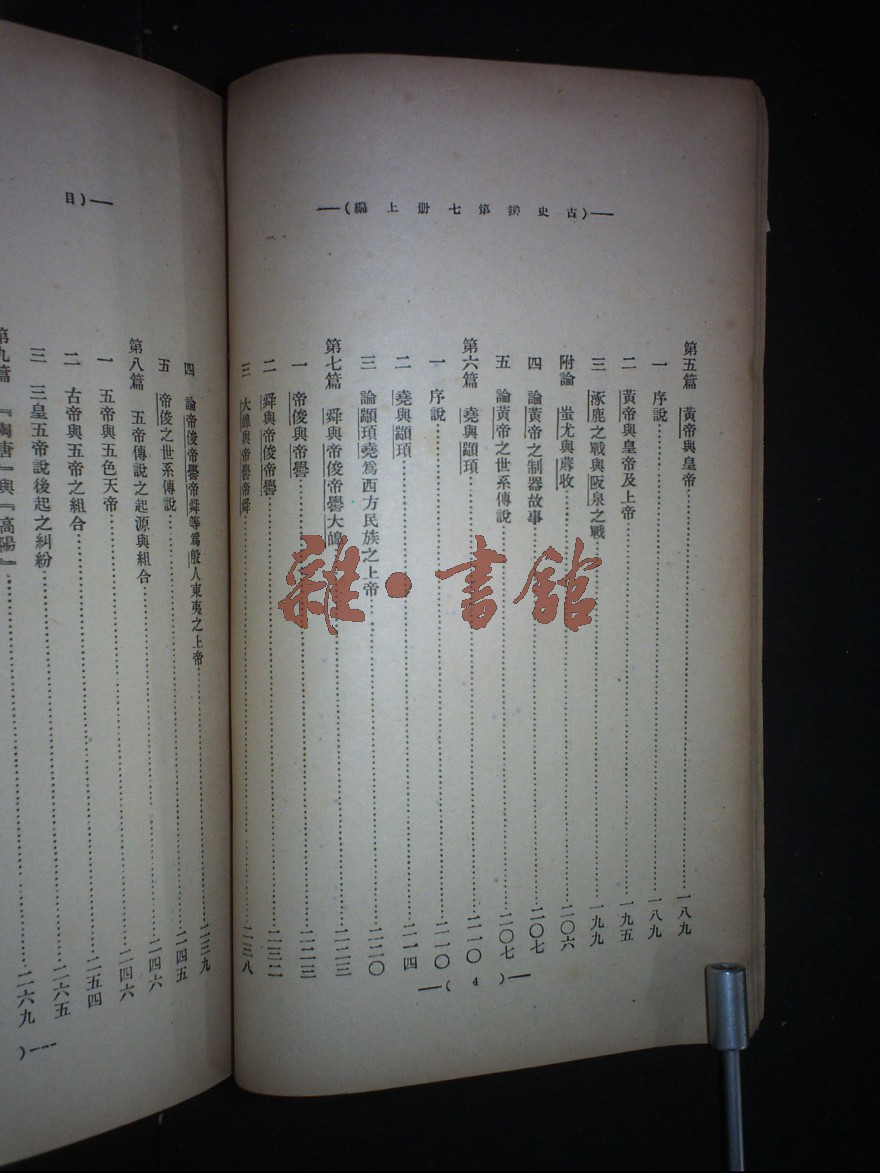 —(古史辨第七册上編)—
第五篇　黃帝與皇帝……一八九
一　序說……一八九
二　黃帝與皇帝及上帝……一九五
三　涿鹿之戰與阪泉之戰……一九九
附論　蚩尤與蓐收……二〇六
四　論黃帝之制器故事……二〇七
五　論黃帝之世系傳說……二〇七
第六篇　堯與顓頊……二一〇
一　序說……二一〇
二　堯與顓頊……二一四
三　論顓頊堯爲西方民族之上帝……二二〇
第七篇　舜與帝俊帝嚳大皞……二二三
一　帝俊與帝嚳……二二三
二　舜與帝俊帝嚳……二三二
三　大皞與帝嚳帝舜……二三八
—(4)—
目)—
四　論帝俊帝嚳帝舜等爲殷人東夷之上帝……二三九
五　帝俊之世系傳說……二四五
第八篇　五帝傳說之起源與組合……二四六
一　五帝與五色天帝……二四六
二　古帝與五帝之組合……二五四
三　三皇五帝說後起之糾紛……二六五
第九篇　『陶唐』與『高陽』……二六九
)—
雜·書館